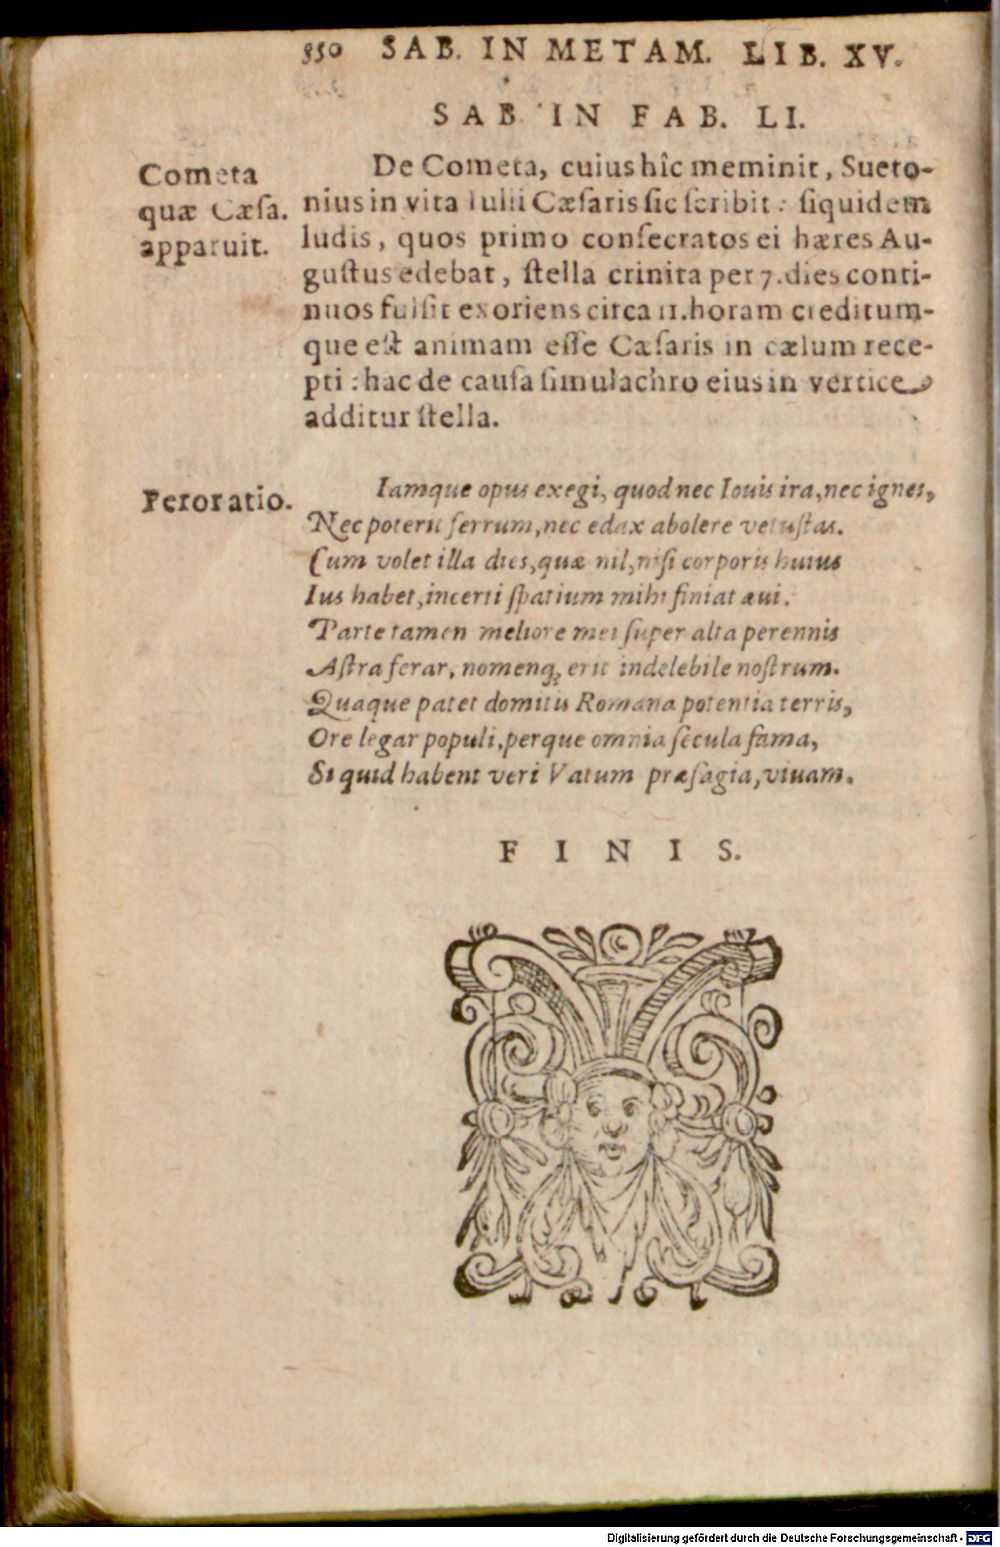 550 SAB. IN METAM. LIB. XV.
SAB. IN FAB. LI.
Cometa
quæ Cæsa.
apparuit.
De Cometa, cuius hîc meminit, Sueto-
nius in vita Iulii Cæsaris sic scribit: siquidem
ludis, quos primo consecratos ei hæres Au-
gustus edebat, stella crinita per 7. dies conti-
nuos fulsit exoriens circa 11. horam creditum-
que est animam esse Cæsaris in cælum rece-
pti: hac de causa simulachro eius in vertice
additur stella.
Peroratio.
Iamque opus exegi, quod nec Iouis ira, nec ignes,
Nec poterit ferrum, nec edax abolere vetustas.
Cum volet illa dies, quæ nil, nisi corporis huius
Ius habet, incerti spatium mihi finiat æui.
Parte tamen meliore mei super alta perennis
Astra ferar, nomenq; erit indelebile nostrum.
Quaque patet domitis Romana potentia terris,
Ore legar populi, perque omnia secula fama,
Si quid habent veri Vatum præsagia, viuam.
FINIS.
Digitalisierung gefördert durch die Deutsche Forschungsgemeinschaft - DFG